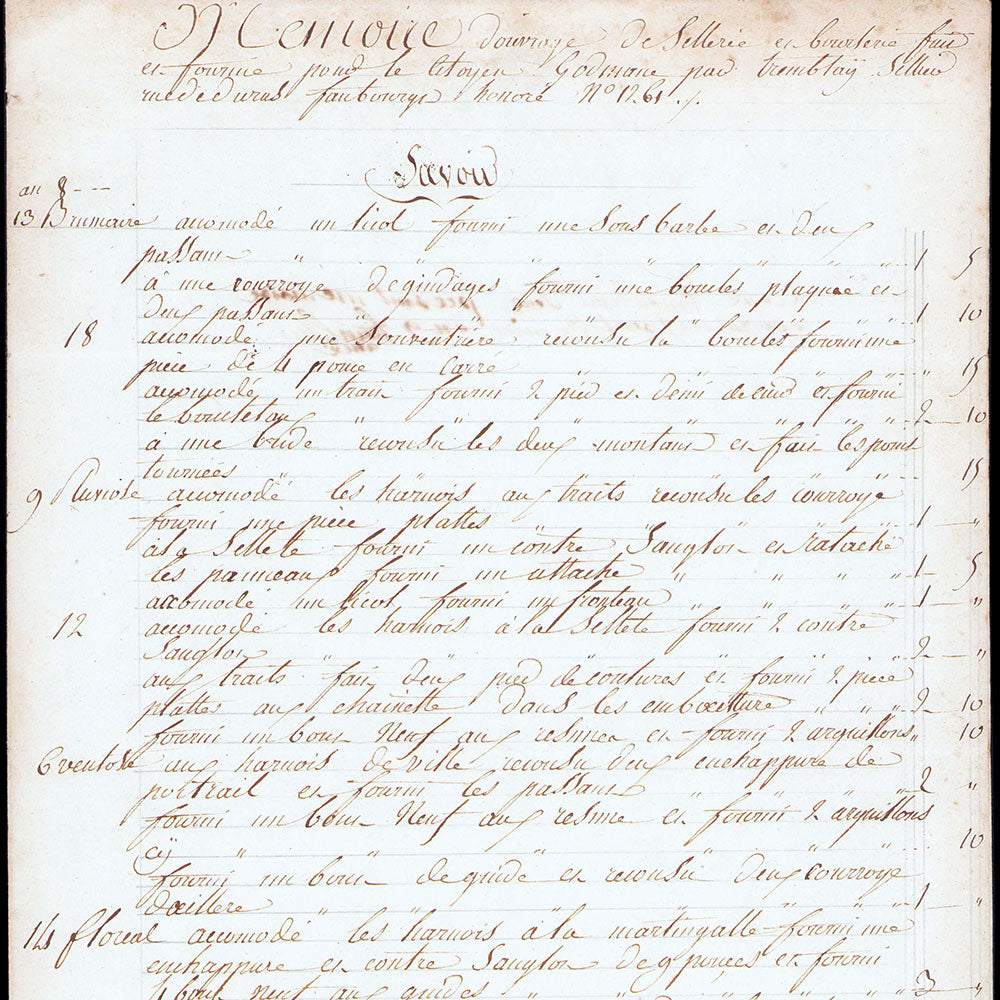 Memoire d'ouvrage de Sellerie et bourlerie fait
et fournie pour le Citoyen Godmane par tremblaÿ Sellier
faubourgs honoré N° 1261
Savoir
an 8
13 Brumaire acomodé un licol fourni une Sous barbe et deux
passans " " " " " 1 5
à une courroye de guidages fourni une boucles plaquée et
deux passans 1 10
18 acomodé une Souventriere recousu la boucles fourni une
pièce de 4 pouce en carré " 15
acomodé un trait fourni 2 pied et demi de cuir et fourni
le bouleteau " " " " " 2 10
à une bride recousu les deux montans et fait les points
tournées 15
9 Pluviose acomodé les harnois aux traits recousu les courroye
fourni une pièce plattes 1 "
à la Sellete fourni un contre Sanglon et ratachè
les panneaux fourni un attache " " " " 1 5
accomodé un licol fourni un fronteau " " " " 1 "
12 acomodé les harnois à la Sellete fourni 2 contre
Sanglon 2 "
aux traits fait deux pied de coutures et fourni 2 pièce
plattes aux chainette dans les emboeitture " " " 2 10
fourni un bout Neuf aux resmes et fourni 2 arguillons " 10
6 ventose aux harnois de ville recousu deux enchappure de
poitrail et fourni les passans " " " " 2 "
fourni un bout Neuf aux resme et fourni 2 arguillons
cy " " " " " " 10
fourni un bout de guide et recousu deux courroye
d'œillere " " " " " 1 "
14 floreal accomodé les harnois à la martingalle fourni une
enchappure et contre Sanglon de 9 pouces et fourni
4 bout neuf aux guides " " " " 3